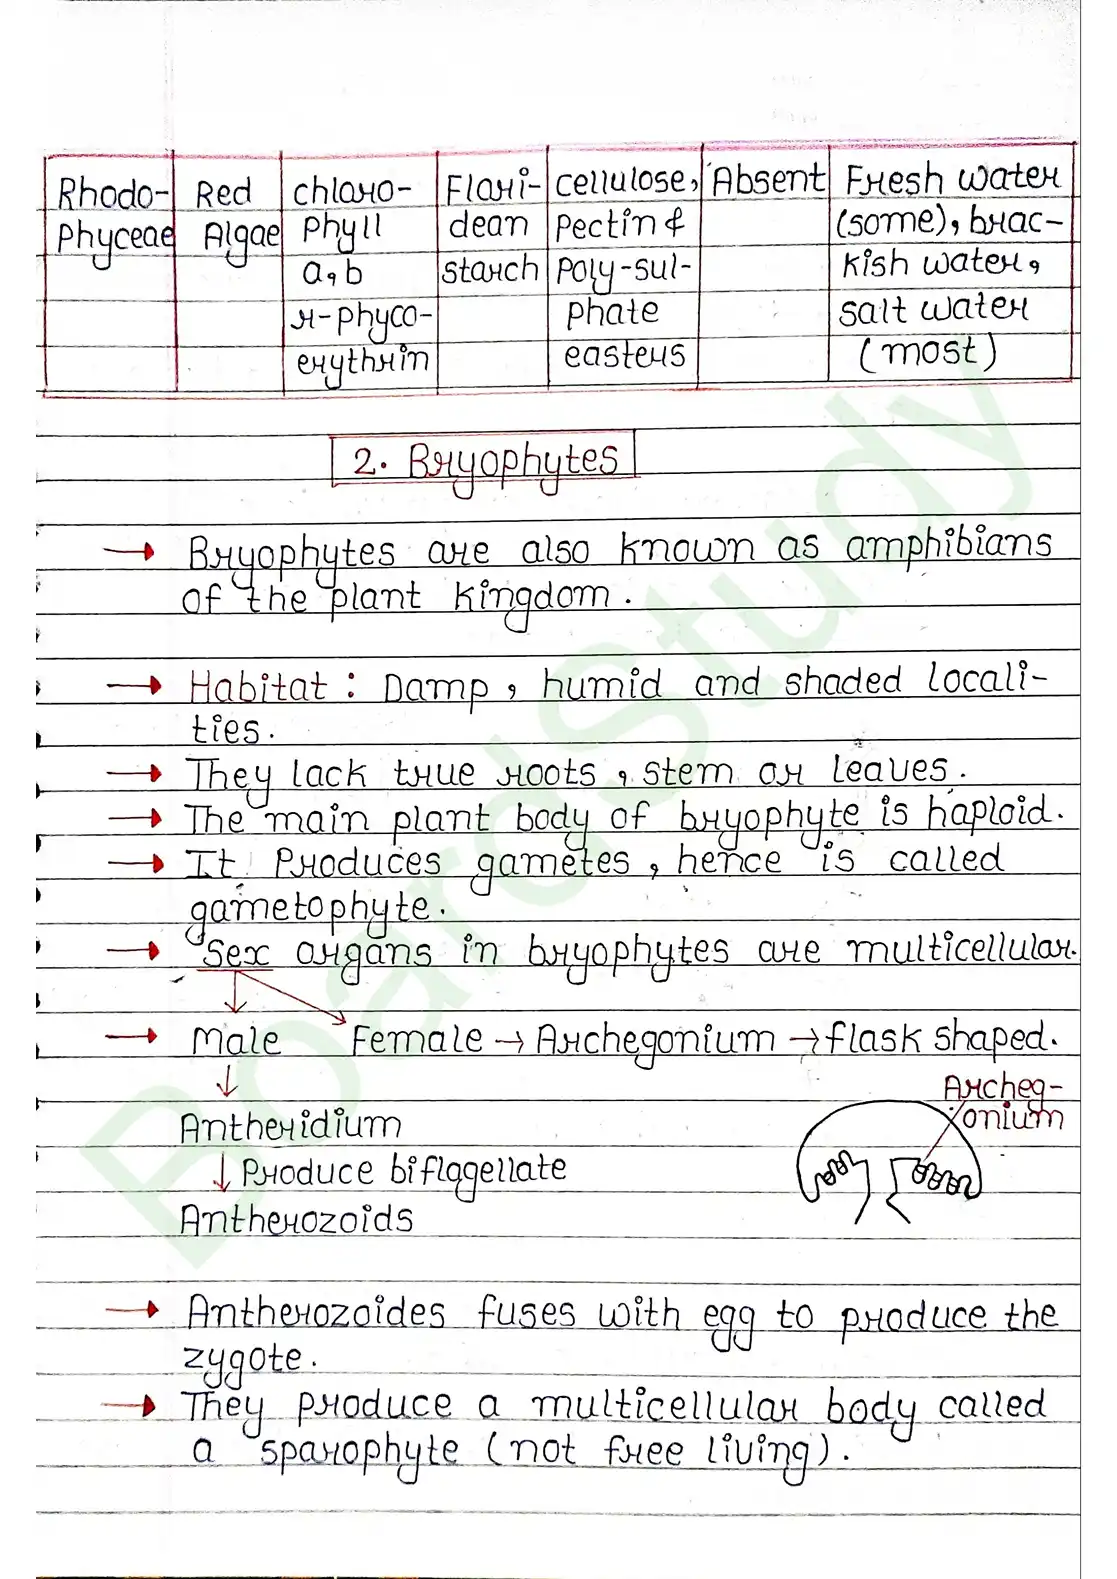 Rhodo- Red chloro- Flori- cellulose, Absent Fresh water
Phyceae Algae Phyll dean Pectin & (some), brac-
a, b starch Poly-sul- kish water,
r-phyco- phate salt water
erythrin easters (most)
2. Bryophytes
→ Bryophytes are also known as amphibians
of the plant kingdom.
→ Habitat : Damp, humid and shaded locali-
ties.
→ They lack true roots, stem or leaves.
→ The main plant body of bryophyte is haploid.
→ It Produces gametes, hence is called
gametophyte.
→ Sex organs in bryophytes are multicellular.
→ Male Female → Archegonium → flask shaped.
↓
Archeg-
onium
Antheridium
↓ Produce biflagellate
Antherozoids
→ Antherozoides fuses with egg to produce the
zygote.
→ They produce a multicellular body called
a sporophyte (not free living).
BoardStudy